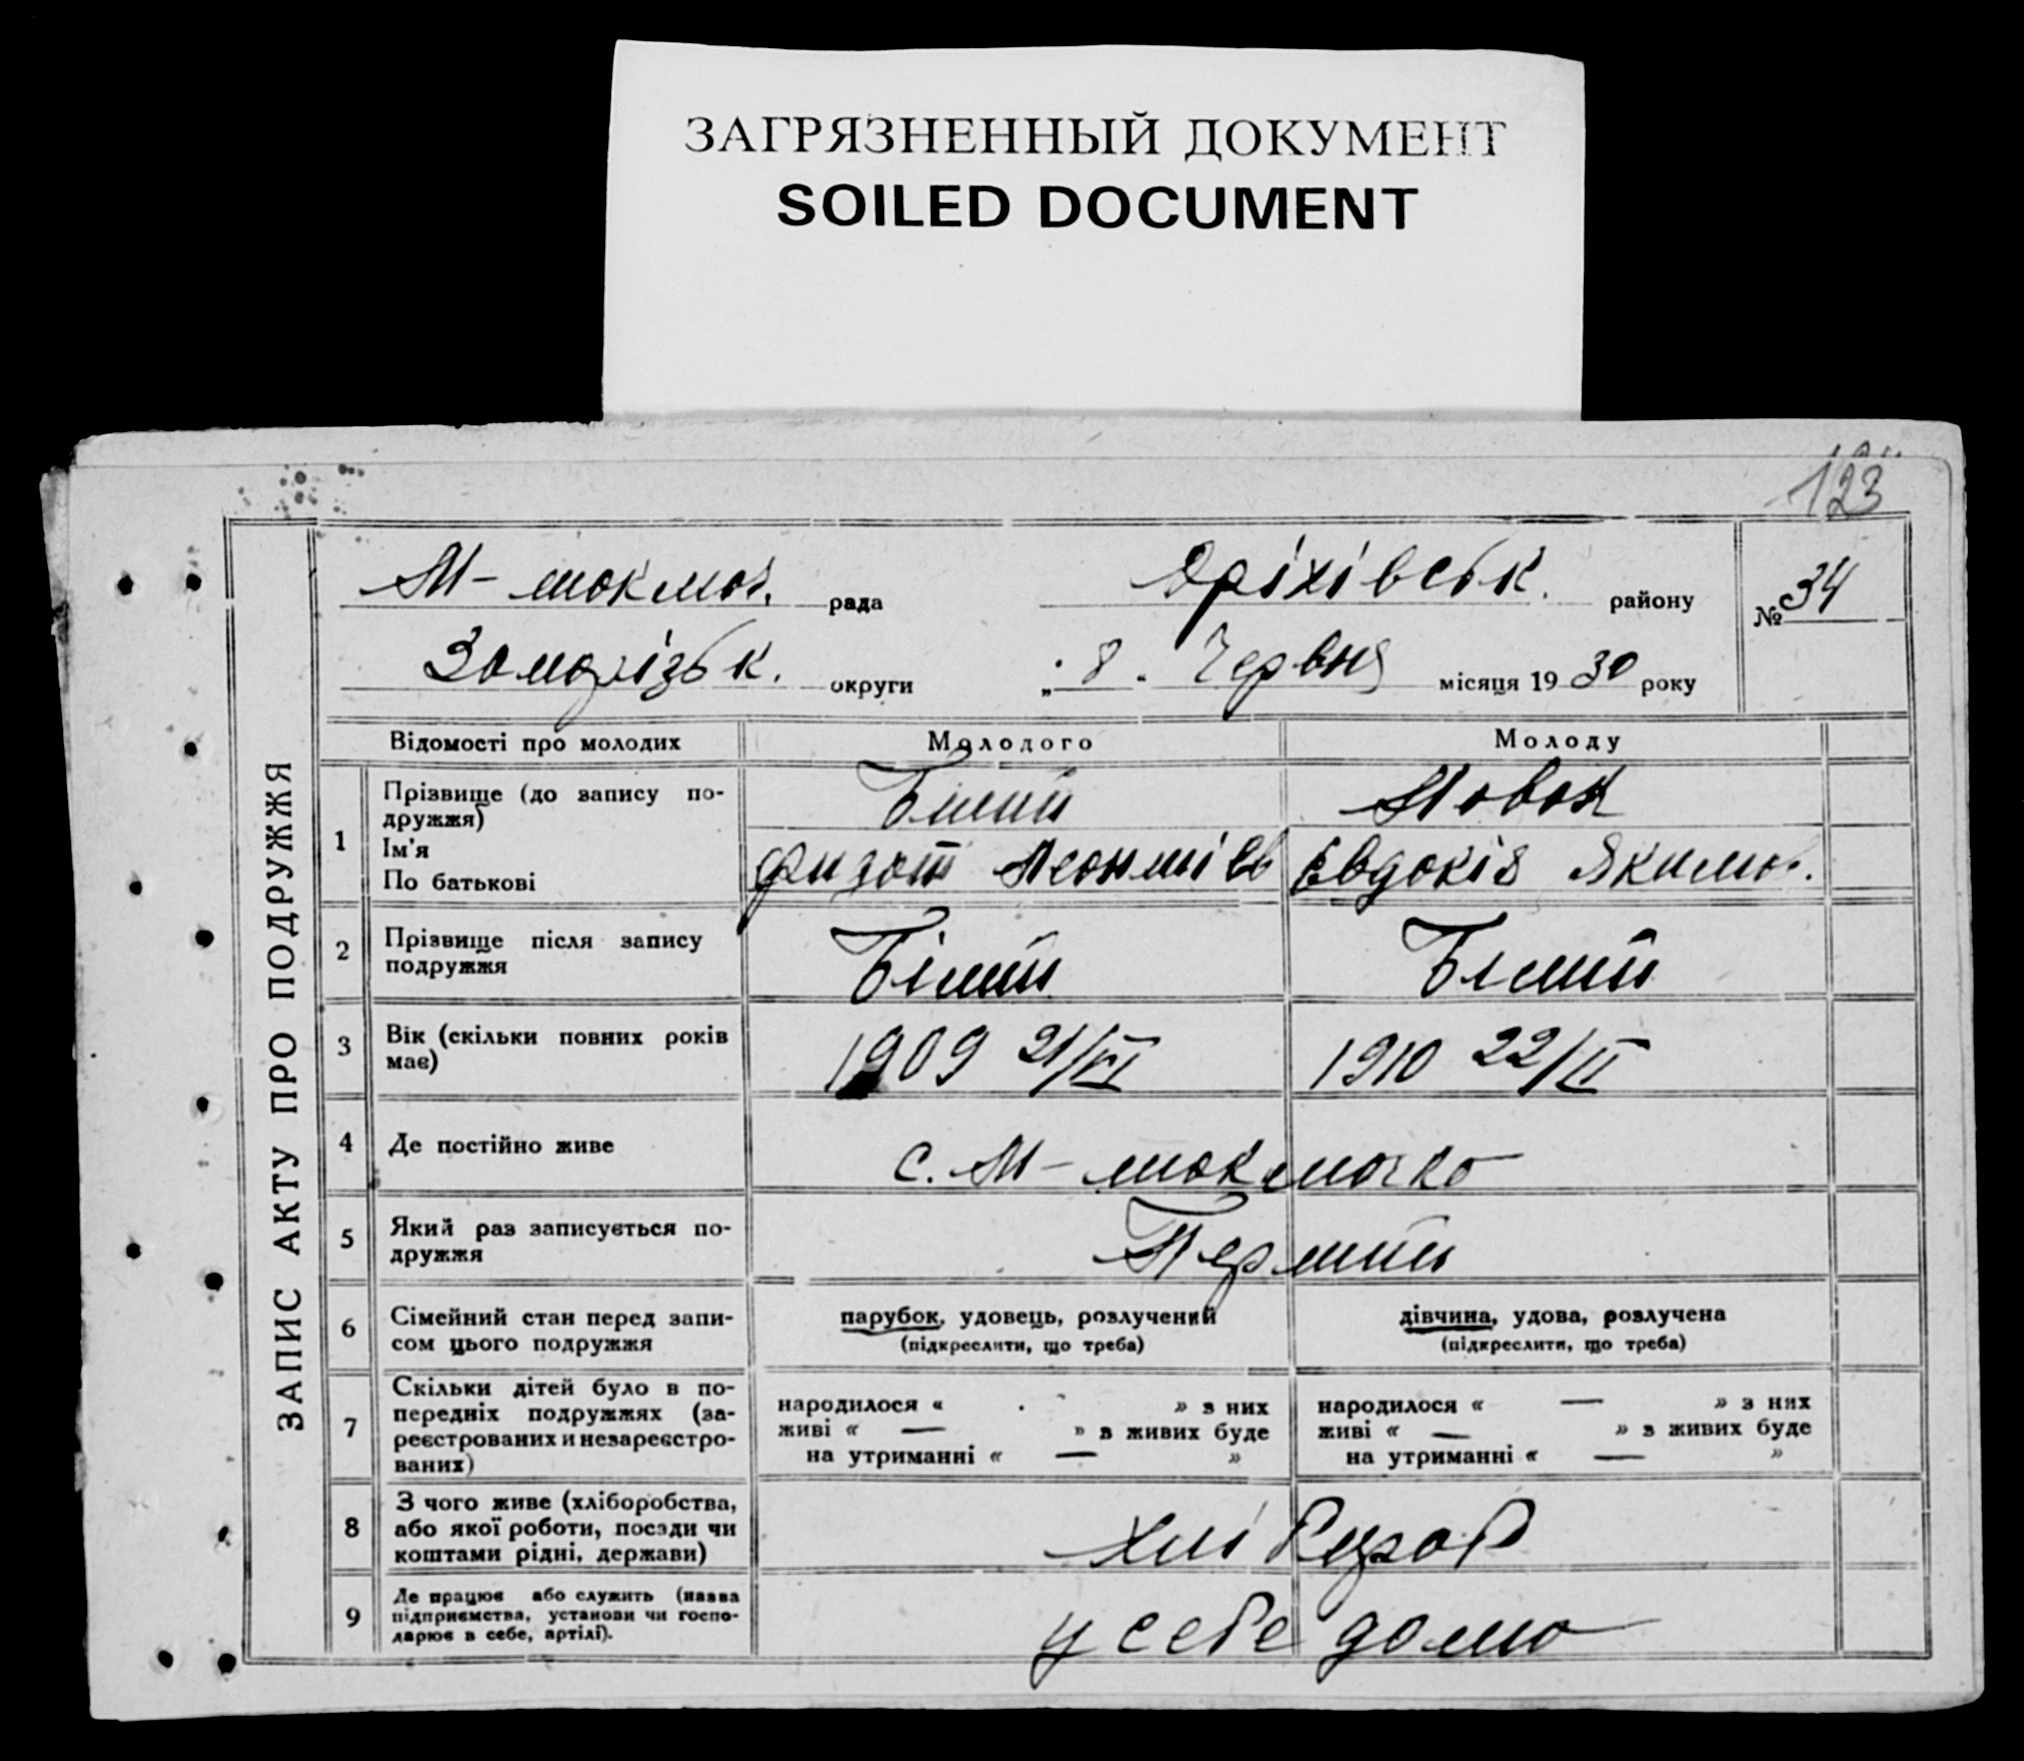 ЗАГРЯЗНЕННЫЙ ДОКУМЕНТ
SOILED DOCUMENT
123
ЗАПИС АКТУ ПРО ПОДРУЖЖЯ
М-токмач. рада Оріхівськ. району № 34
Запорізьк. округи „8" Червня місяця 1930 року
Відомості про молодих Молодого Молоду
1 Прізвище (до запису по-
дружжя) Білий Новак
Ім'я
По батькові Євдокія Якимов.
2 Прізвище після запису
подружжя Білий Білий
3 Вік (скільки повних років
має) 1909 21/VI 1910 22/II
4 Де постійно живе с. М-токмачка
5 Який раз записується по-
дружжя Перший
6 Сімейний стан перед запи-
сом цього подружжя
парубок, удовець, розлучений
(підкреслити, що треба)
дівчина, удова, розлучена
(підкреслити, що треба)
7 Скільки дітей було в по-
передніх подружжях (за-
реєстрованих и незареєстро-
ваних)
народилося « » з них
живі « — » з живих буде
на утриманні « — »
народилося « — » з них
живі « — » з живих буде
на утриманні « — »
8 З чого живе (хліборобства,
або якої роботи, посади чи
коштами рідні, держави) хлібороб
9 Де працює або служить (назва
підприємства, установи чи госпо-
дарює в себе, артілі). у себе дома